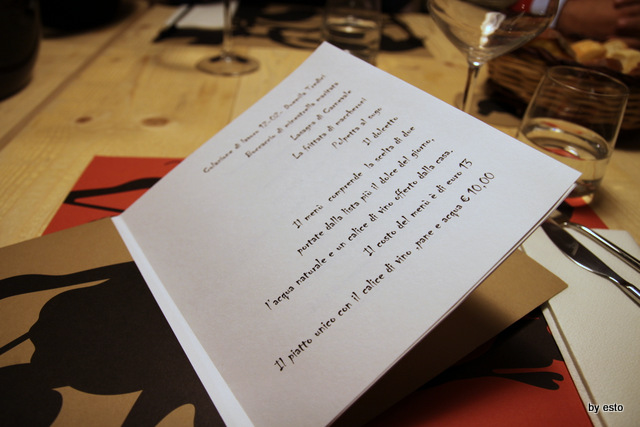 Colazione di lavoro
Lasagna di Carnevale
La frittata di maccheroni
Polpetta al sugo
Il dolcetto
Il menù comprende la scelta di due
portate dalla lista più il dolce del giorno,
l'acqua naturale e un calice di vino offerto dalla casa.
Il costo del menù è di euro 13
Il piatto unico con il calice di vino, pane e acqua € 10,00
by esto